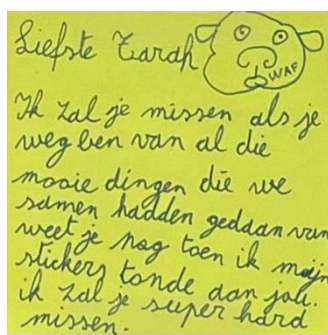 Liefste Zarah
WAF
Ik zal je missen als je
weg ben van al die
mooie dingen die we
samen hadden gedaan van
weet je nog toen ik mijn
stickers tonde aan jou.
ik zal je super hard
missen.